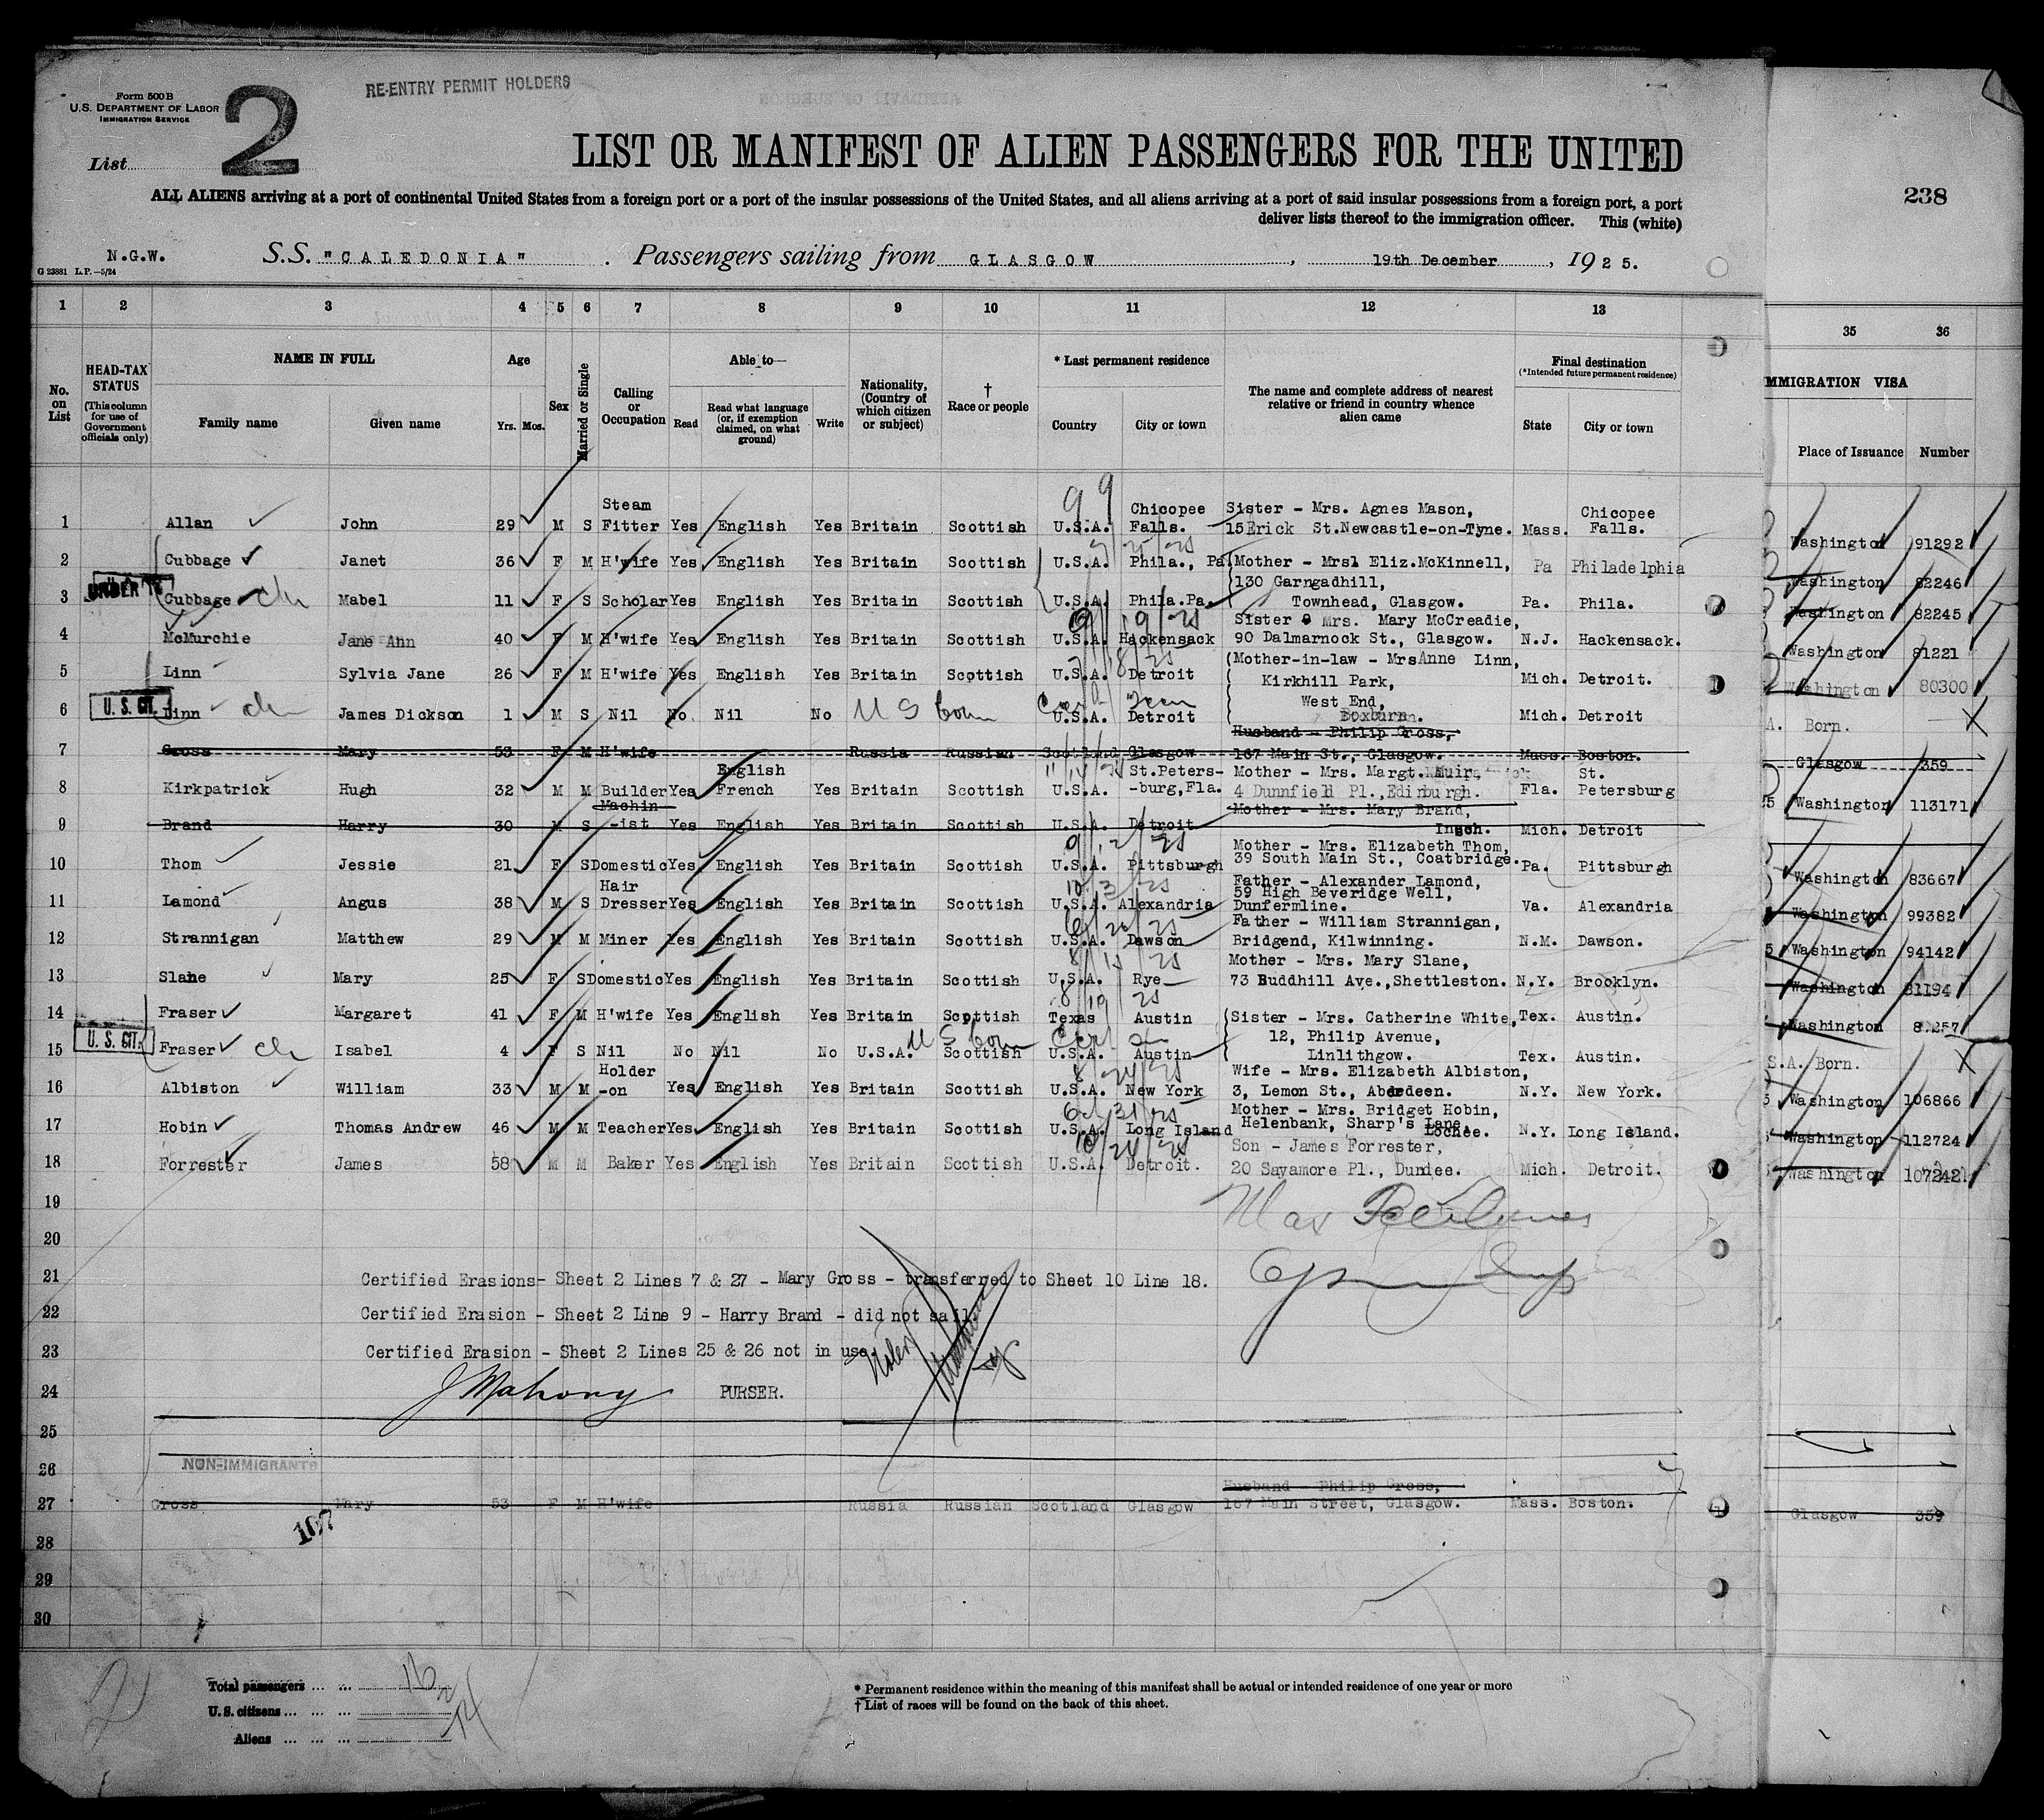 RE-ENTRY PERMIT HOLDERS
Form 500 B
U.S. DEPARTMENT OF LABOR
IMMIGRATION SERVICE
List 2
LIST OR MANIFEST OF ALIEN PASSENGERS FOR THE UNITED
238
ALL ALIENS arriving at a port of continental United States from a foreign port or a port of the insular possessions of the United States, and all aliens arriving at a port of said insular possessions from a foreign port, a port
deliver lists thereof to the immigration officer. This (white)
N.G.W. S.S. "CALEDONIA". Passengers sailing from GLASGOW, 19th December, 1925.
G 23881 L.P.—5/24
1 2 3 4 5 6 7 8 9 10 11 12 13 35 36
No. on List
HEAD-TAX STATUS (This column for use of Government officials only)
NAME IN FULL
Family name Given name
Age Yrs. Mos.
Sex
Married or Single
Calling or Occupation
Able to—
Read Read what language (or, if exemption claimed, on what ground) Write
Nationality, (Country of which citizen or subject)
† Race or people
* Last permanent residence
Country City or town
The name and complete address of nearest relative or friend in country whence alien came
Final destination (*Intended future permanent residence)
State City or town
MMIGRATION VISA
Place of Issuance Number
1 Allan John 29 M S Steam Fitter Yes English Yes Britain Scottish U.S.A. Chicopee Falls. Sister - Mrs. Agnes Mason, 15 Erick St. Newcastle-on-Tyne. Mass. Chicopee Falls. Washington 91292
2 Cubbage Janet 36 F M H'wife Yes English Yes Britain Scottish U.S.A. Phila., Pa Mother - Mrsl Eliz. McKinnell, Pa Philadelphia Washington 82246
UNDER 16
3 Cubbage Mabel 11 F S Scholar Yes English Yes Britain Scottish U.S.A. Phila. Pa. 130 Garngadhill, Townhead, Glasgow. Pa. Phila. Washington 82245
4 McMurchie Jane Ann 40 F M H'wife Yes English Yes Britain Scottish U.S.A. Hackensack Sister Mrs. Mary McCreadie, 90 Dalmarnock St., Glasgow. N.J. Hackensack. Washington 81221
5 Linn Sylvia Jane 26 F M H'wife Yes English Yes Britain Scottish U.S.A. Detroit (Mother-in-law - Mrs Anne Linn, Kirkhill Park, Mich. Detroit. Washington 80300
U. S. CIT.
6 Linn James Dickson 1 M S Nil No. Nil No U S born U.S.A. Detroit West End, Mich. Detroit A. Born.
7 Gross Mary 53 F M H'wife Russia Russian Scotland Glasgow Husband - Philip Gross, 167 Main St., Glasgow. Mass. Boston. Glasgow 359
8 Kirkpatrick Hugh 32 M M Builder Yes English French Yes Britain Scottish U.S.A. St. Peters- -burg, Fla. Mother - Mrs. Margt. Muir, 4 Dunnfield Pl., Edinburgh. Fla. St. Petersburg Washington 113171
9 Brand Harry 30 M S Machin -ist Yes English Yes Britain Scottish U.S.A. Detroit Mother - Mrs. Mary Brand, Insch. Mich. Detroit
10 Thom Jessie 21 F S Domestic Yes English Yes Britain Scottish U.S.A. Pittsburgh Mother - Mrs. Elizabeth Thom, 39 South Main St., Coatbridge. Pa. Pittsburgh Washington 83667
11 Lamond Angus 38 M S Hair Dresser Yes English Yes Britain Scottish U.S.A. Alexandria Father - Alexander Lamond, 59 High Beveridge Well, Dunfermline. Va. Alexandria Washington 99382
12 Strannigan Matthew 29 M M Miner Yes English Yes Britain Scottish U.S.A. Dawson Father - William Strannigan, Bridgend, Kilwinning. N.M. Dawson. Washington 94142
13 Slane Mary 25 F S Domestic Yes English Yes Britain Scottish U.S.A. Rye Mother - Mrs. Mary Slane, 73 Buddhill Ave., Shettleston. N.Y. Brooklyn. Washington 81194
14 Fraser Margaret 41 F M H'wife Yes English Yes Britain Scottish Texas Austin Sister - Mrs. Catherine White, Tex. Austin. Washington
U. S. CIT.
15 Fraser Isabel 4 F S Nil No Nil No U.S.A. U S born Scottish U.S.A. Austin 12, Philip Avenue, Linlithgow. Tex. Austin. S.A. Born.
16 Albiston William 33 M M Holder -on Yes English Yes Britain Scottish U.S.A. New York Wife - Mrs. Elizabeth Albiston, 3, Lemon St., Aberdeen. N.Y. New York. Washington 106866
17 Hobin Thomas Andrew 46 M M Teacher Yes English Yes Britain Scottish U.S.A. Long Island Mother - Mrs. Bridget Hobin, Helenbank, Sharp's Lane, Lochee. N.Y. Long Island. Washington 112724
18 Forrester James 58 M M Baker Yes English Yes Britain Scottish U.S.A. Detroit. Son - James Forrester, 20 Sayamore Pl., Dundee. Mich. Detroit. Washington 107242
19
20
21 Certified Erasions- Sheet 2 Lines 7 & 27 - Mary Gross - transferred to Sheet 10 Line 18.
22 Certified Erasion - Sheet 2 Line 9 - Harry Brand - did not sail.
23 Certified Erasion - Sheet 2 Lines 25 & 26 not in use.
24 J Mahony PURSER.
25
26 NON-IMMIGRANTS
27 Gross Mary 53 F M H'wife Russia Russian Scotland Glasgow Husband - Philip Gross, 167 Main Street, Glasgow. Mass. Boston. Glasgow 359
107
28
29
30
Total passengers ... ... 16
U. S. citizens ... ... ... 2
Aliens ... ... ... 14
* Permanent residence within the meaning of this manifest shall be actual or intended residence of one year or more
† List of races will be found on the back of this sheet.